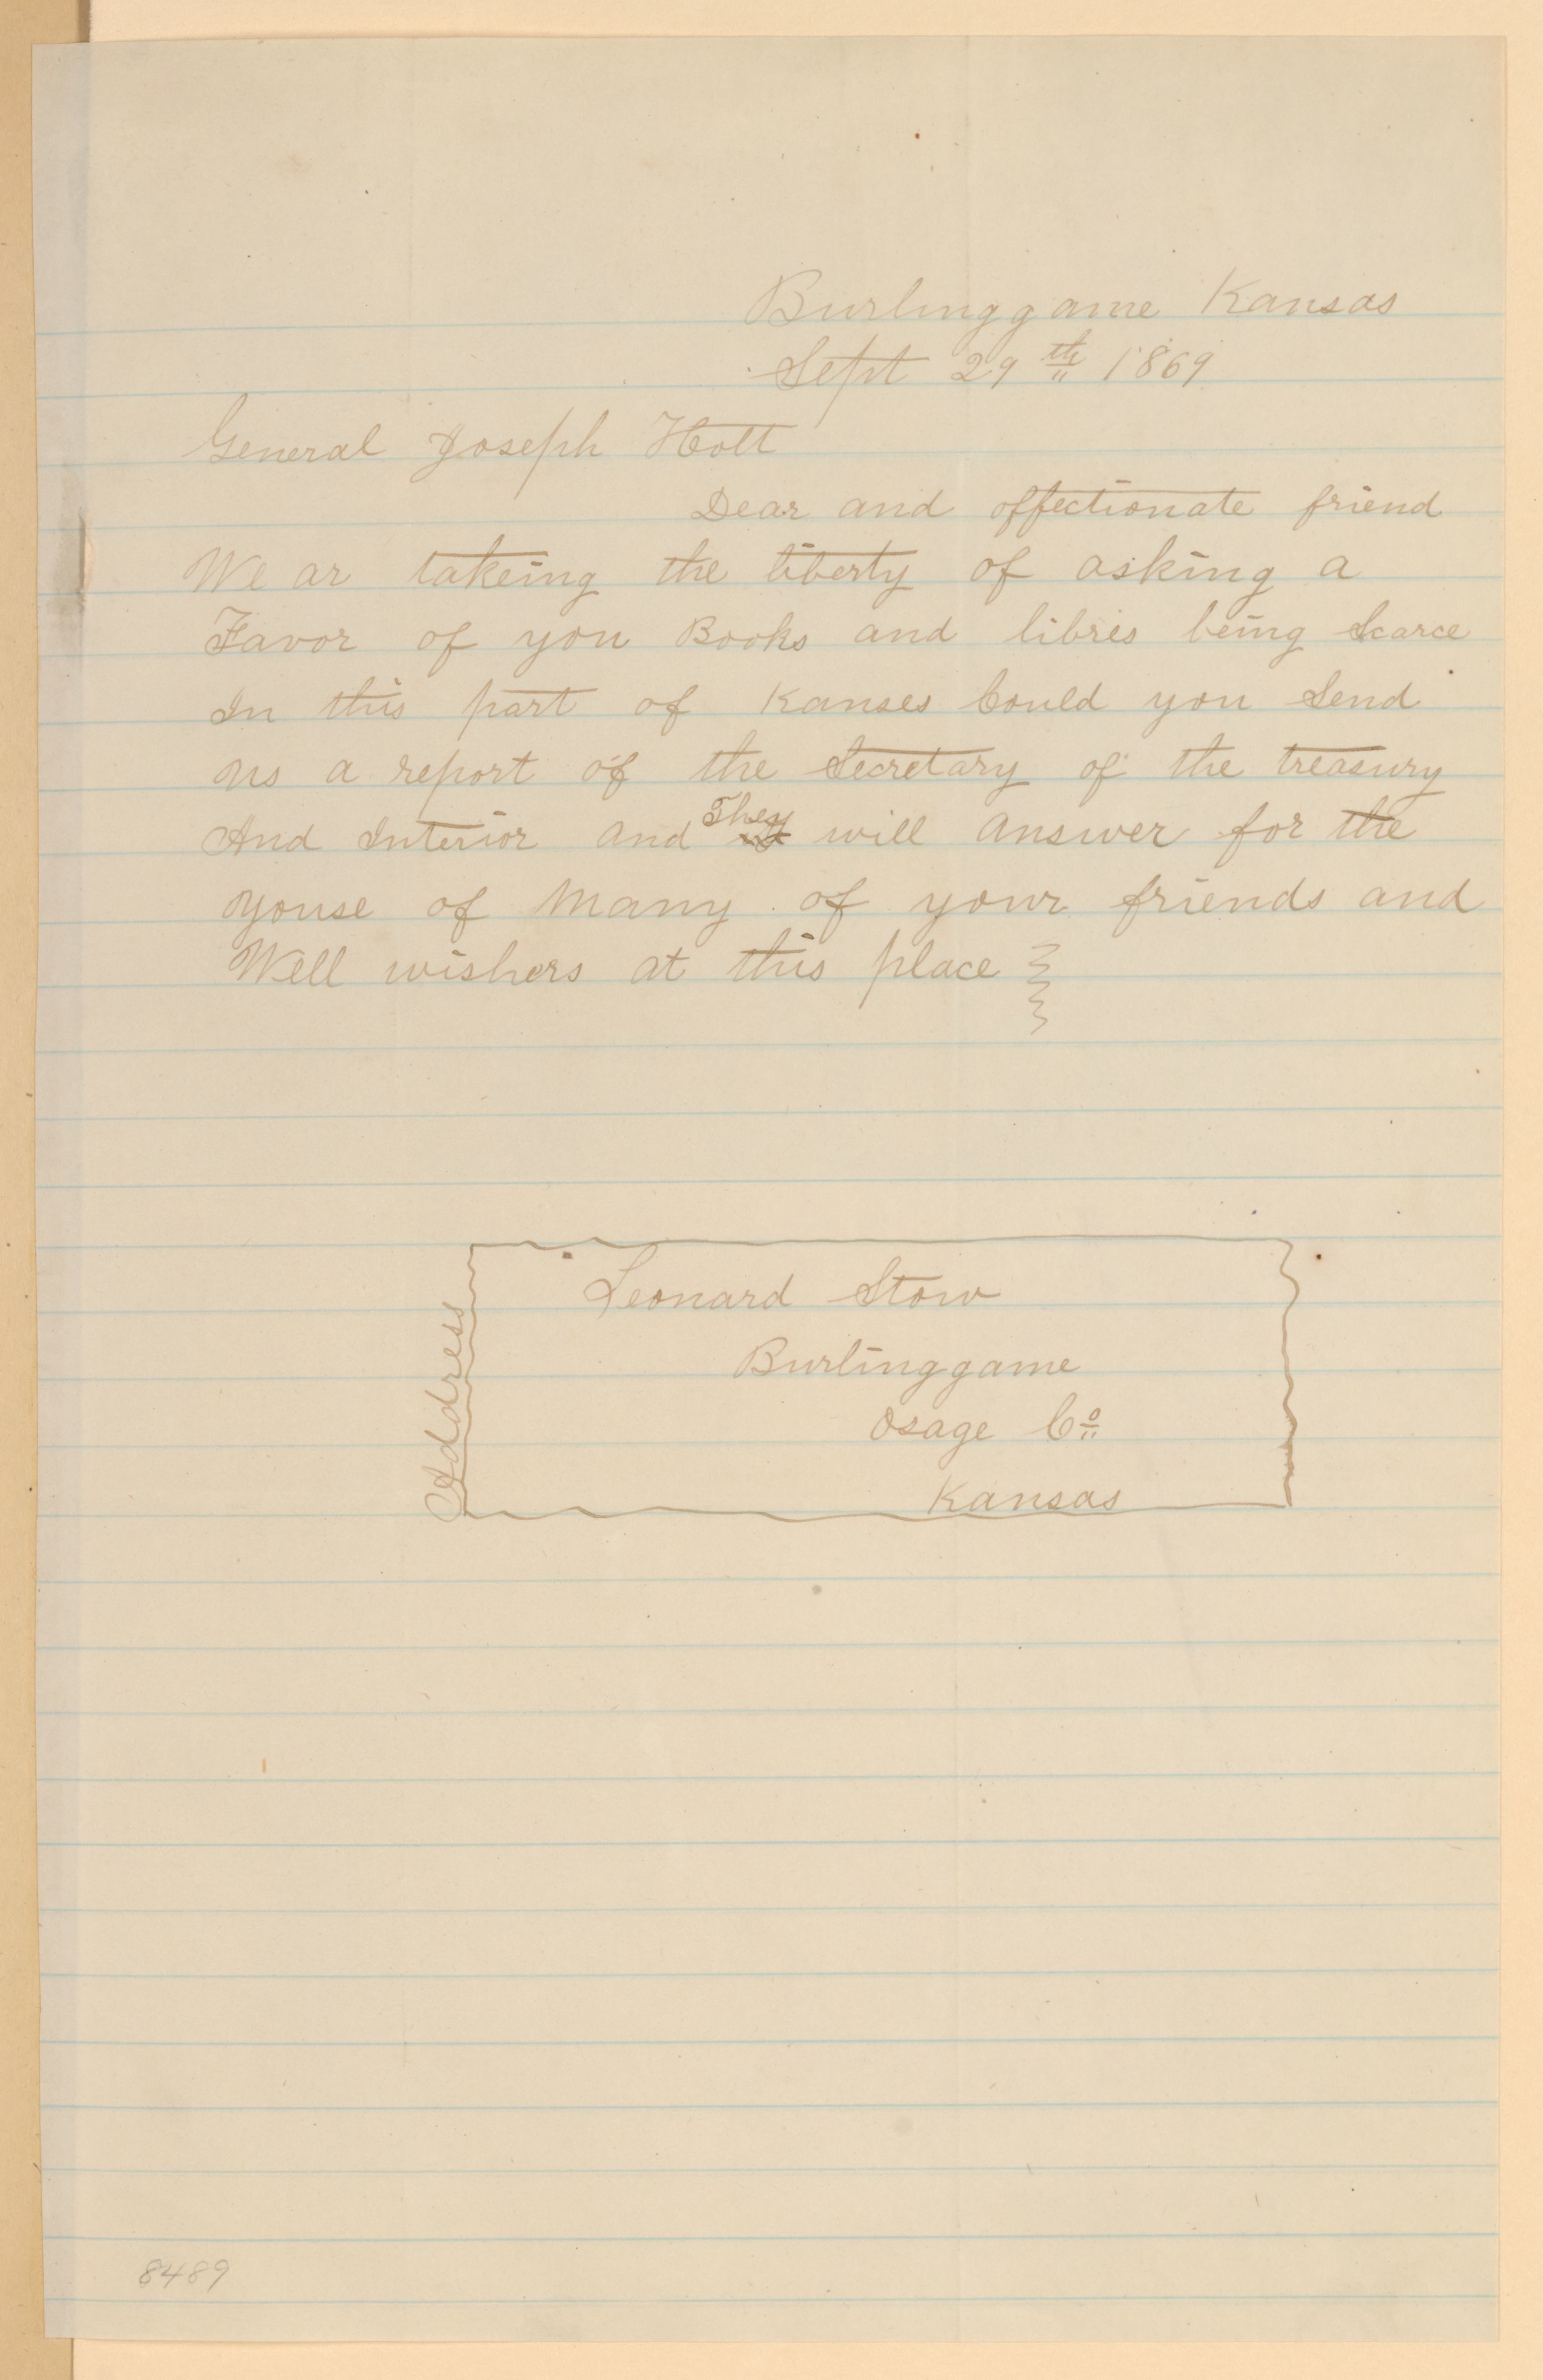 Burlinggame Kansas
Sept 29th 1869
General Joseph Holt
Dear and offectionate friend
We ar takeing the liberty of asking a
Favor of you Books and libres being Scarce
In this part of Kanses Could you Send
us a report of the Secretary of the treasury
And Interior and They will answer for the
youse of Many of your friends and
Well wishers at this place
Address
Leonard Stow
Burlinggame
Osage Co
Kansas
8489